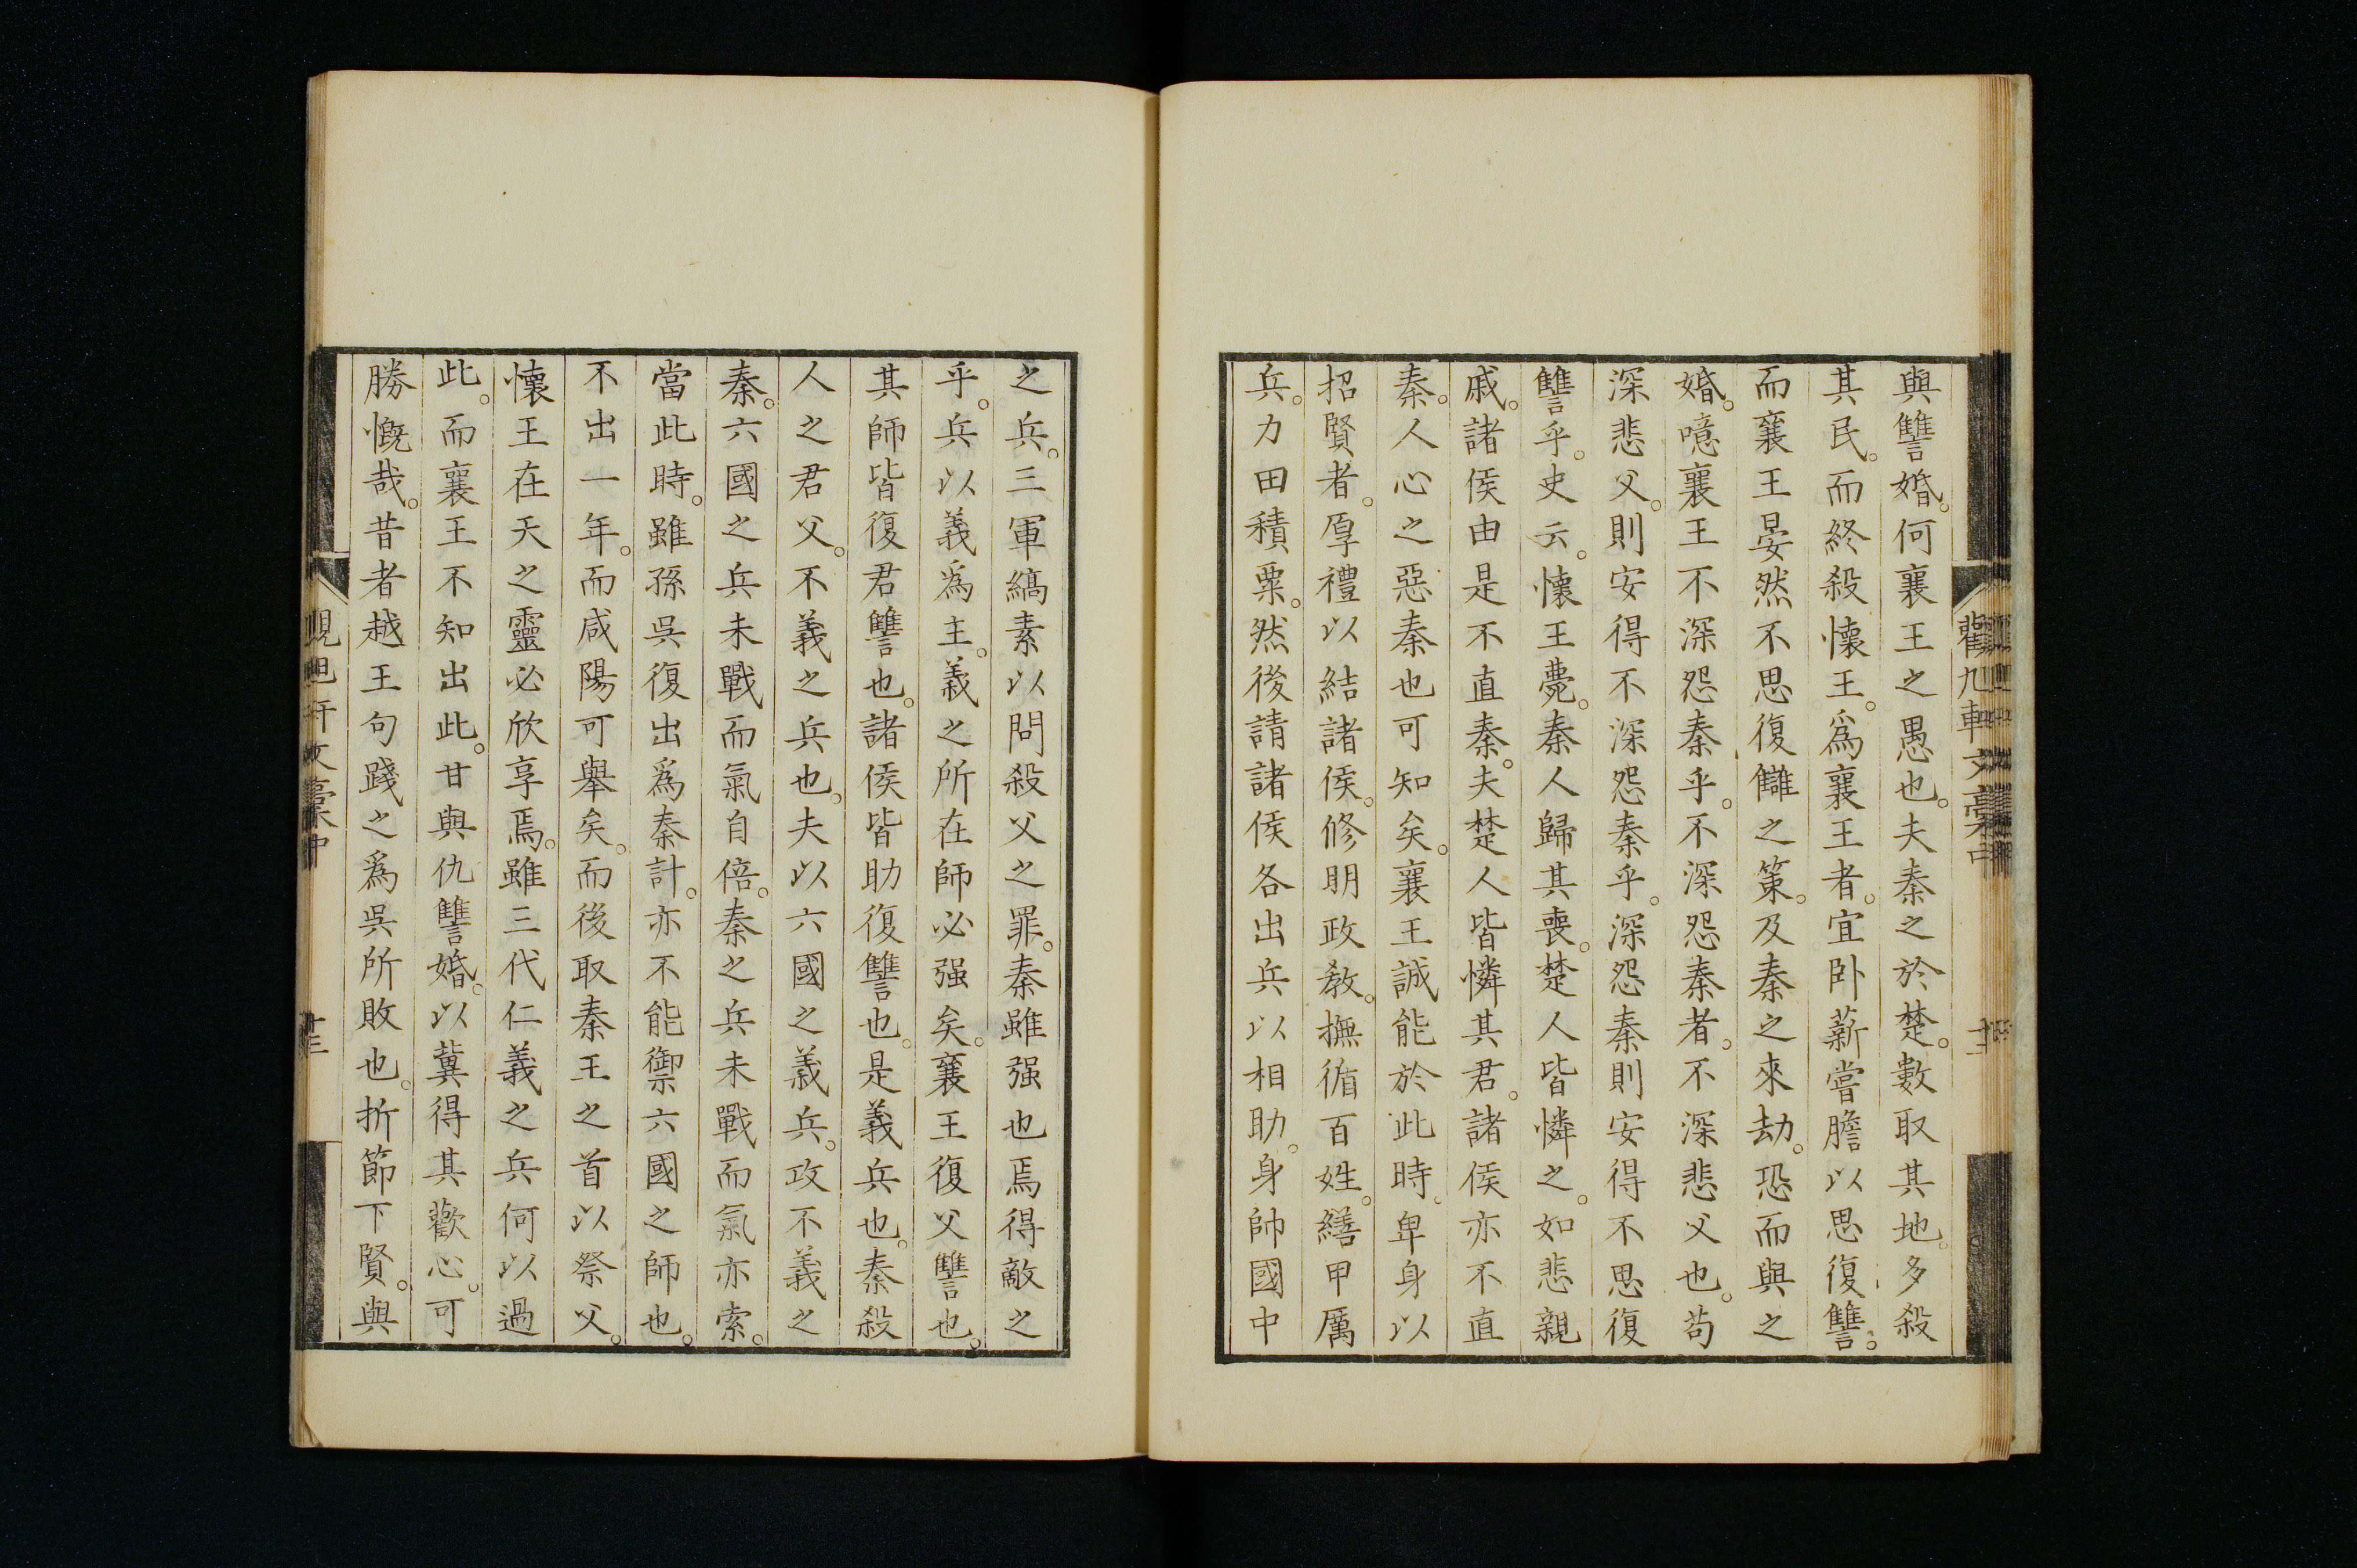 與讐婚。何襄王之愚也。夫秦之於楚。數取其地。多殺
其民。而終殺懷王。爲襄王者。宜卧薪嘗膽以思復讐。
而襄王晏然不思復讎之策。及秦之來劫。恐而與之
婚。噫襄王不深怨秦乎。不深怨秦者。不深悲父也。苟
深悲父。則安得不深怨秦乎。深怨秦則安得不思復
讐乎。史云。懷王薨。秦人歸其喪。楚人皆憐之。如悲親
戚。諸侯由是不直秦。夫楚人皆憐其君。諸侯亦不直
秦。人心之惡秦也可知矣。襄王誠能於此時。卑身以
招賢者。厚禮以結諸侯。修明政教。撫循百姓。繕甲厲
兵。力田積粟。然後請諸侯各出兵以相助。身帥國中
之兵。三軍縞素以問殺父之罪。秦雖强也焉得敵之
乎。兵以義爲主。義之所在師必强矣。襄王復父讐也。
其師皆復君讐也。諸侯皆助復讐也。是義兵也。秦殺
人之君父。不義之兵也。夫以六國之義兵。攻不義之
秦。六國之兵未戰而氣自倍。秦之兵未戰而氣亦索。
當此時。雖孫吳復出爲秦計。亦不能禦六國之師也。
不出一年。而咸陽可舉矣。而後取秦王之首以祭父。
懷王在天之靈必欣享焉。雖三代仁義之兵何以過
此。而襄王不知出此。甘與仇讐婚。以冀得其歡心。可
勝慨哉。昔者越王句踐之爲吳所敗也。折節下賢。與
文稾中
十三